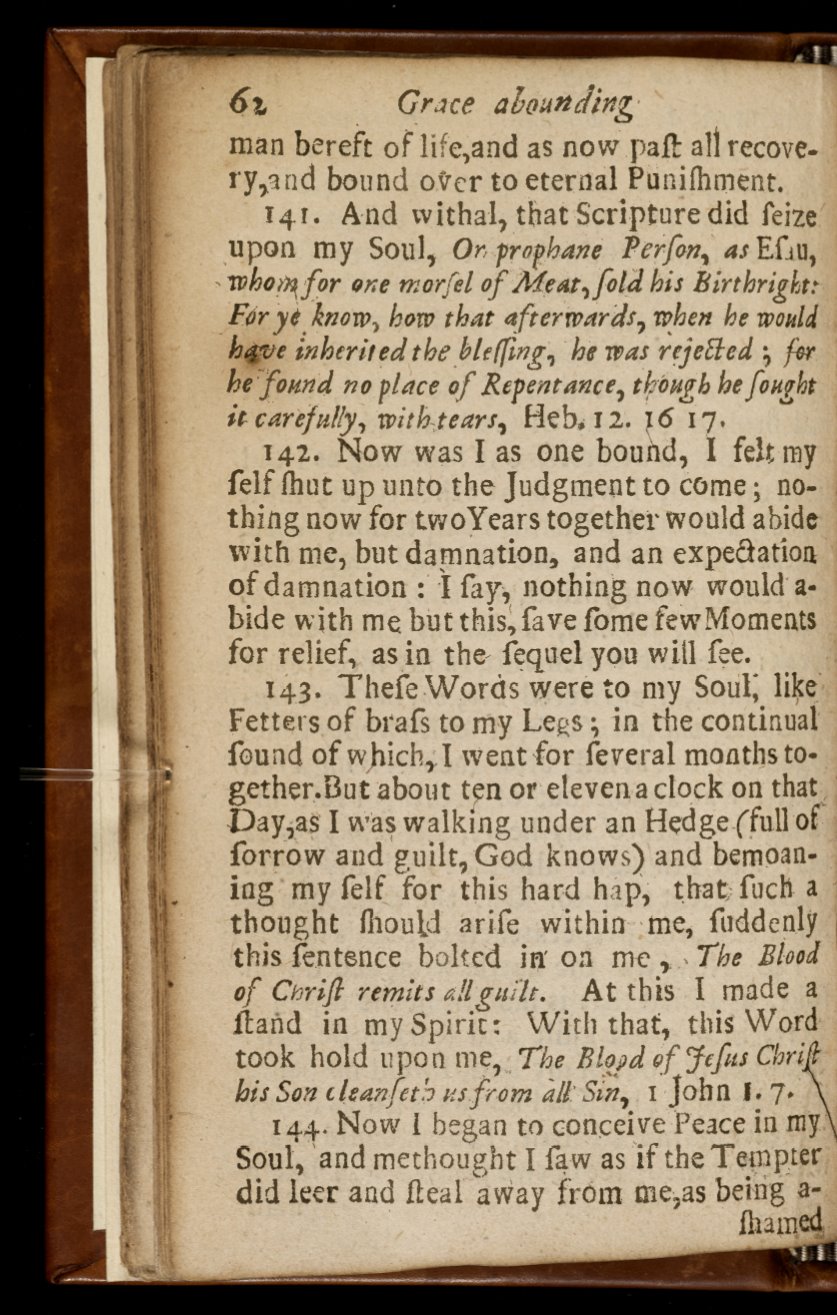 62 Grace abounding
man bereft of life,and as now paſt all recove-
ry,and bound over to eternal Puniſhment.
141. And withal, that Scripture did ſeize
upon my Soul, Or prophane Perſon, as Eſau,
whom for one morſel of Meat, ſold his Birthright:
For ye know, how that afterwards, when he would
have inherited the bleſſing, he was rejected ; for
he found no place of Repentance, though he ſought
it carefully, with tears, Heb. 12. 16 17.
142. Now was I as one bound, I felt my
ſelf ſhut up unto the Judgment to come ; no-
thing now for two Years together would abide
with me, but damnation, and an expectation
of damnation : I ſay, nothing now would a-
bide with me but this, ſave ſome few Moments
for relief, as in the ſequel you will ſee.
143. Theſe Words were to my Soul, like
Fetters of braſs to my Legs ; in the continual
ſound of which, I went for ſeveral months to-
gether. But about ten or eleven a clock on that
Day,as I was walking under an Hedge (full of
ſorrow and guilt, God knows) and bemoan-
ing my ſelf for this hard hap, that ſuch a
thought ſhould ariſe within me, ſuddenly
this ſentence bolted in on me , The Blood
of Chriſt remits all guilt. At this I made a
ſtand in my Spirit: With that, this Word
took hold upon me, The Blood of Jeſus Chriſt
his Son cleanſeth us from all Sin, 1 John 1. 7.
144. Now I began to conceive Peace in my
Soul, and methought I ſaw as if the Tempter
did leer and ſteal away from me,as being a-
ſhamed